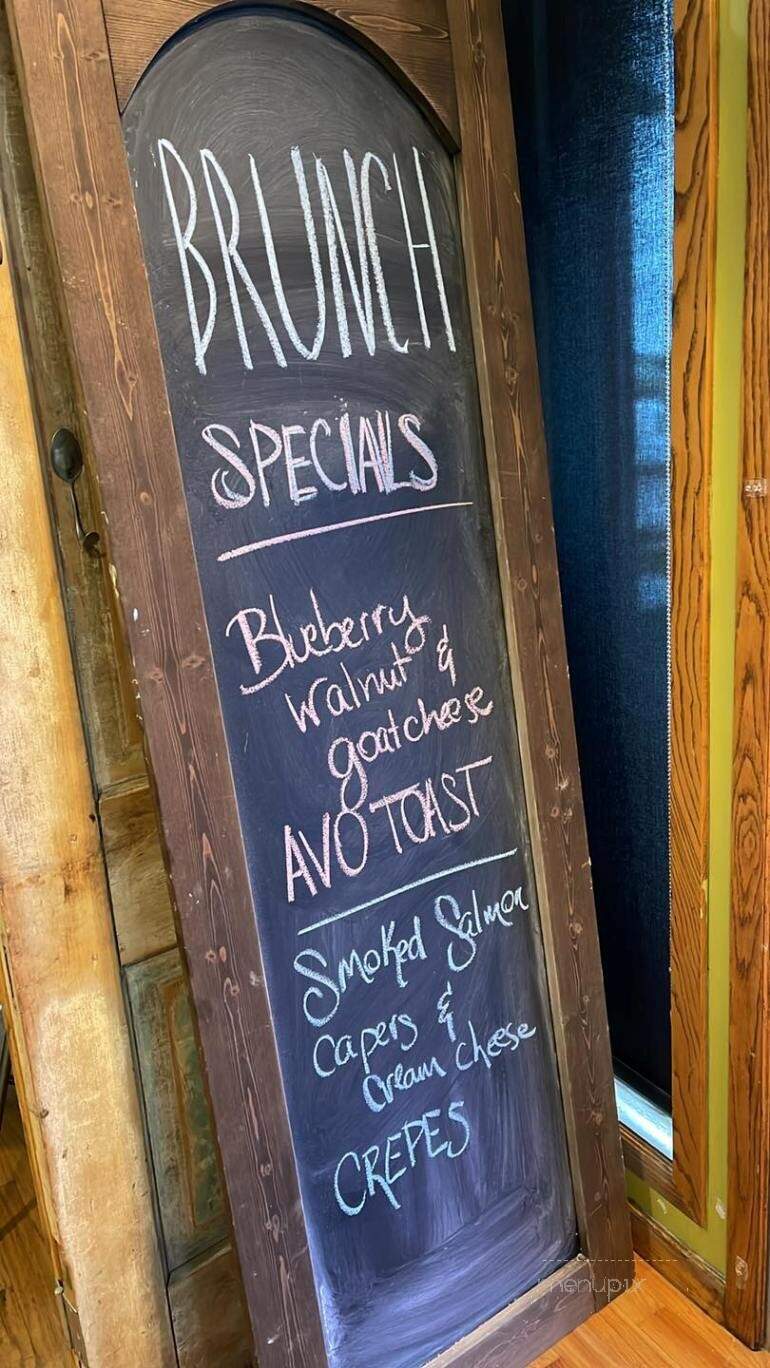 BRUNCH
SPECIALS
Blueberry
walnut &
goat cheese
AVO TOAST
Smoked Salmon
capers &
cream cheese
CREPES
menupix